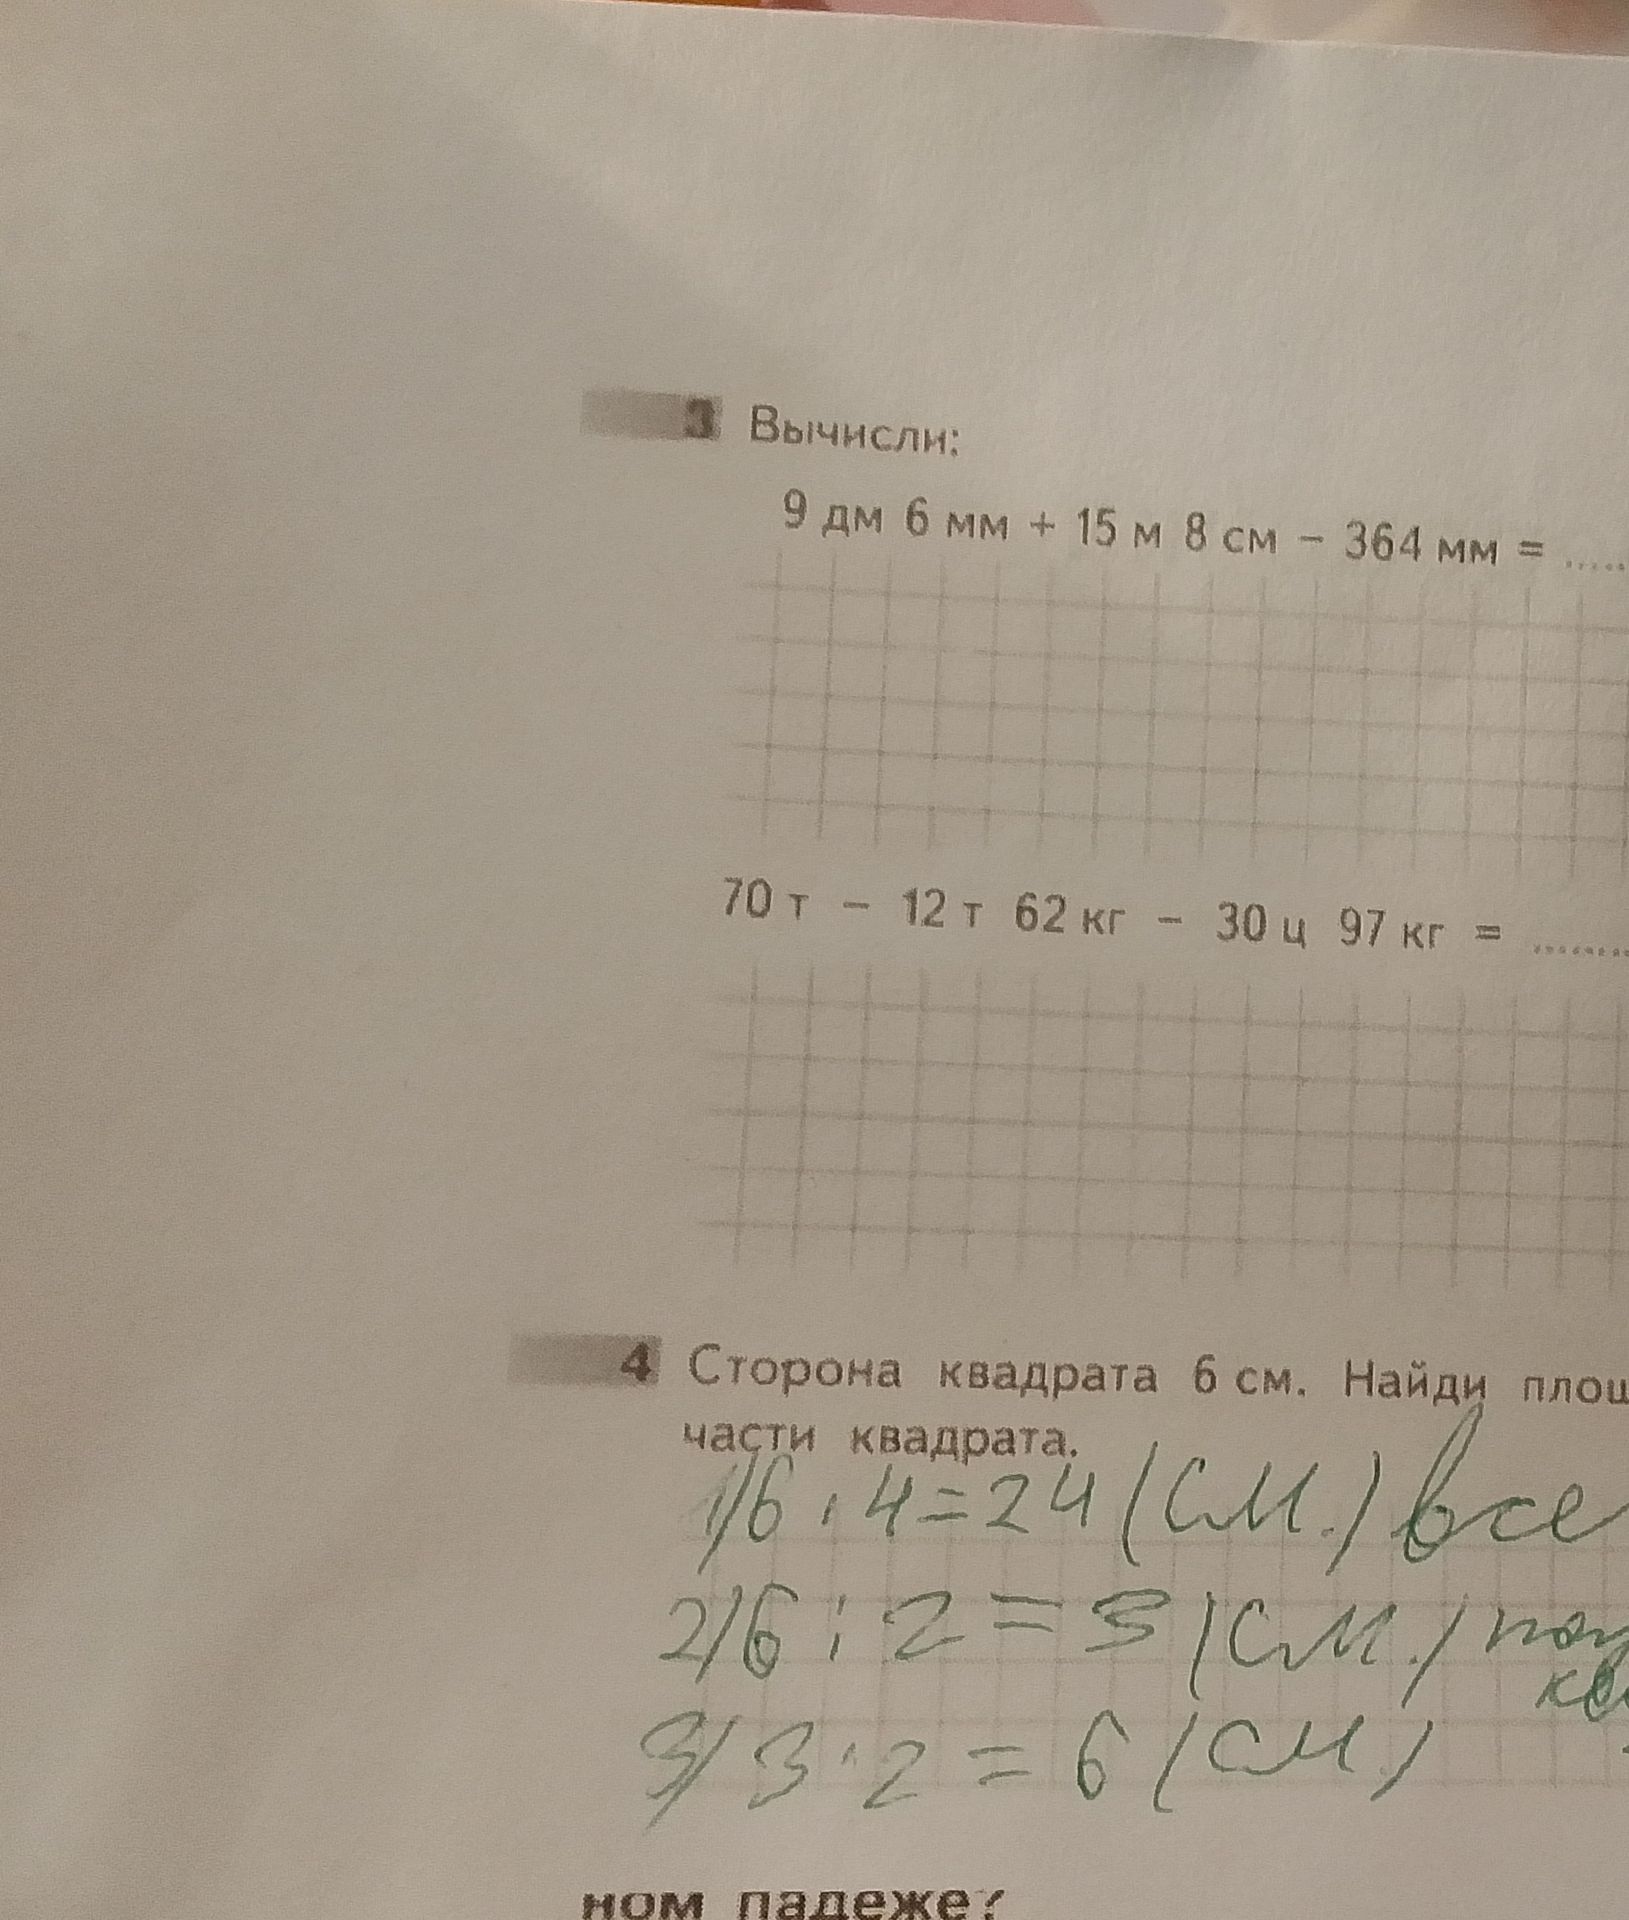 3 Вычисли:
9 дм 6 мм + 15 м 8 см − 364 мм = .....
70 т − 12 т 62 кг − 30 ц 97 кг = .........
4 Сторона квадрата 6 см. Найди площ
части квадрата.
1) 6 · 4 = 24 (см.) все
2) 6 : 2 = 3 (см.)
3) 3 · 2 = 6 (см.)
ном падеже?